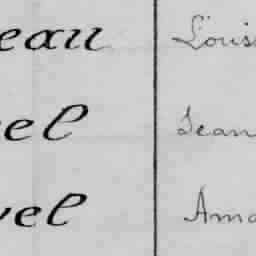 eau Louis
el Jean
vel Ama